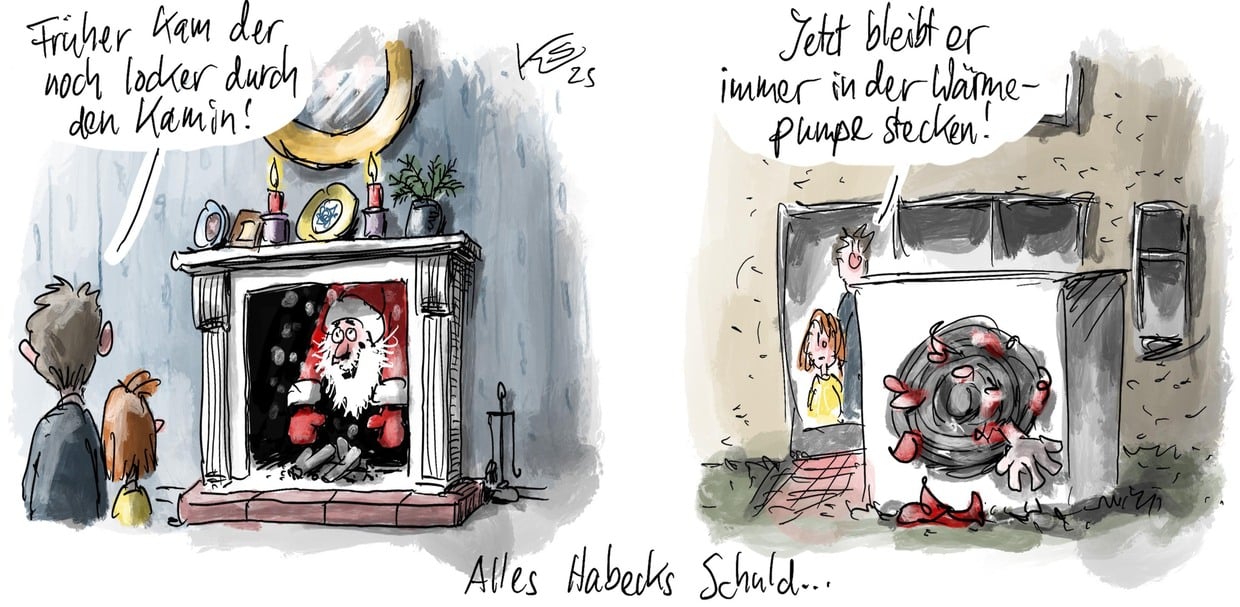 Früher kam der
noch locker durch
den Kamin!
Jetzt bleibt er
immer in der Wärme-
pumpe stecken!
Alles Habecks Schuld...